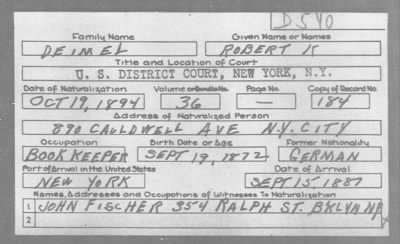 D540
Family Name Given Name or Names
DEIMEL ROBERT K
Title and Location of Court
U. S. DISTRICT COURT, NEW YORK, N.Y.
Date of Naturalization Volume or Bundle No. Page No. Copy of Record No.
OCT 19, 1894 36 — 184
Address of Naturalized Person
890 CAULDWELL AVE N.Y. CITY
Occupation Birth Date or Age Former Nationality
BOOK KEEPER SEPT 19, 1872 GERMAN
Port of Arrival in the United States Date of Arrival
NEW YORK SEPT 15, 1887
Names, Addresses and Occupations of Witnesses To Naturalization
1 JOHN FISCHER 354 RALPH ST. BKLYN NY
2